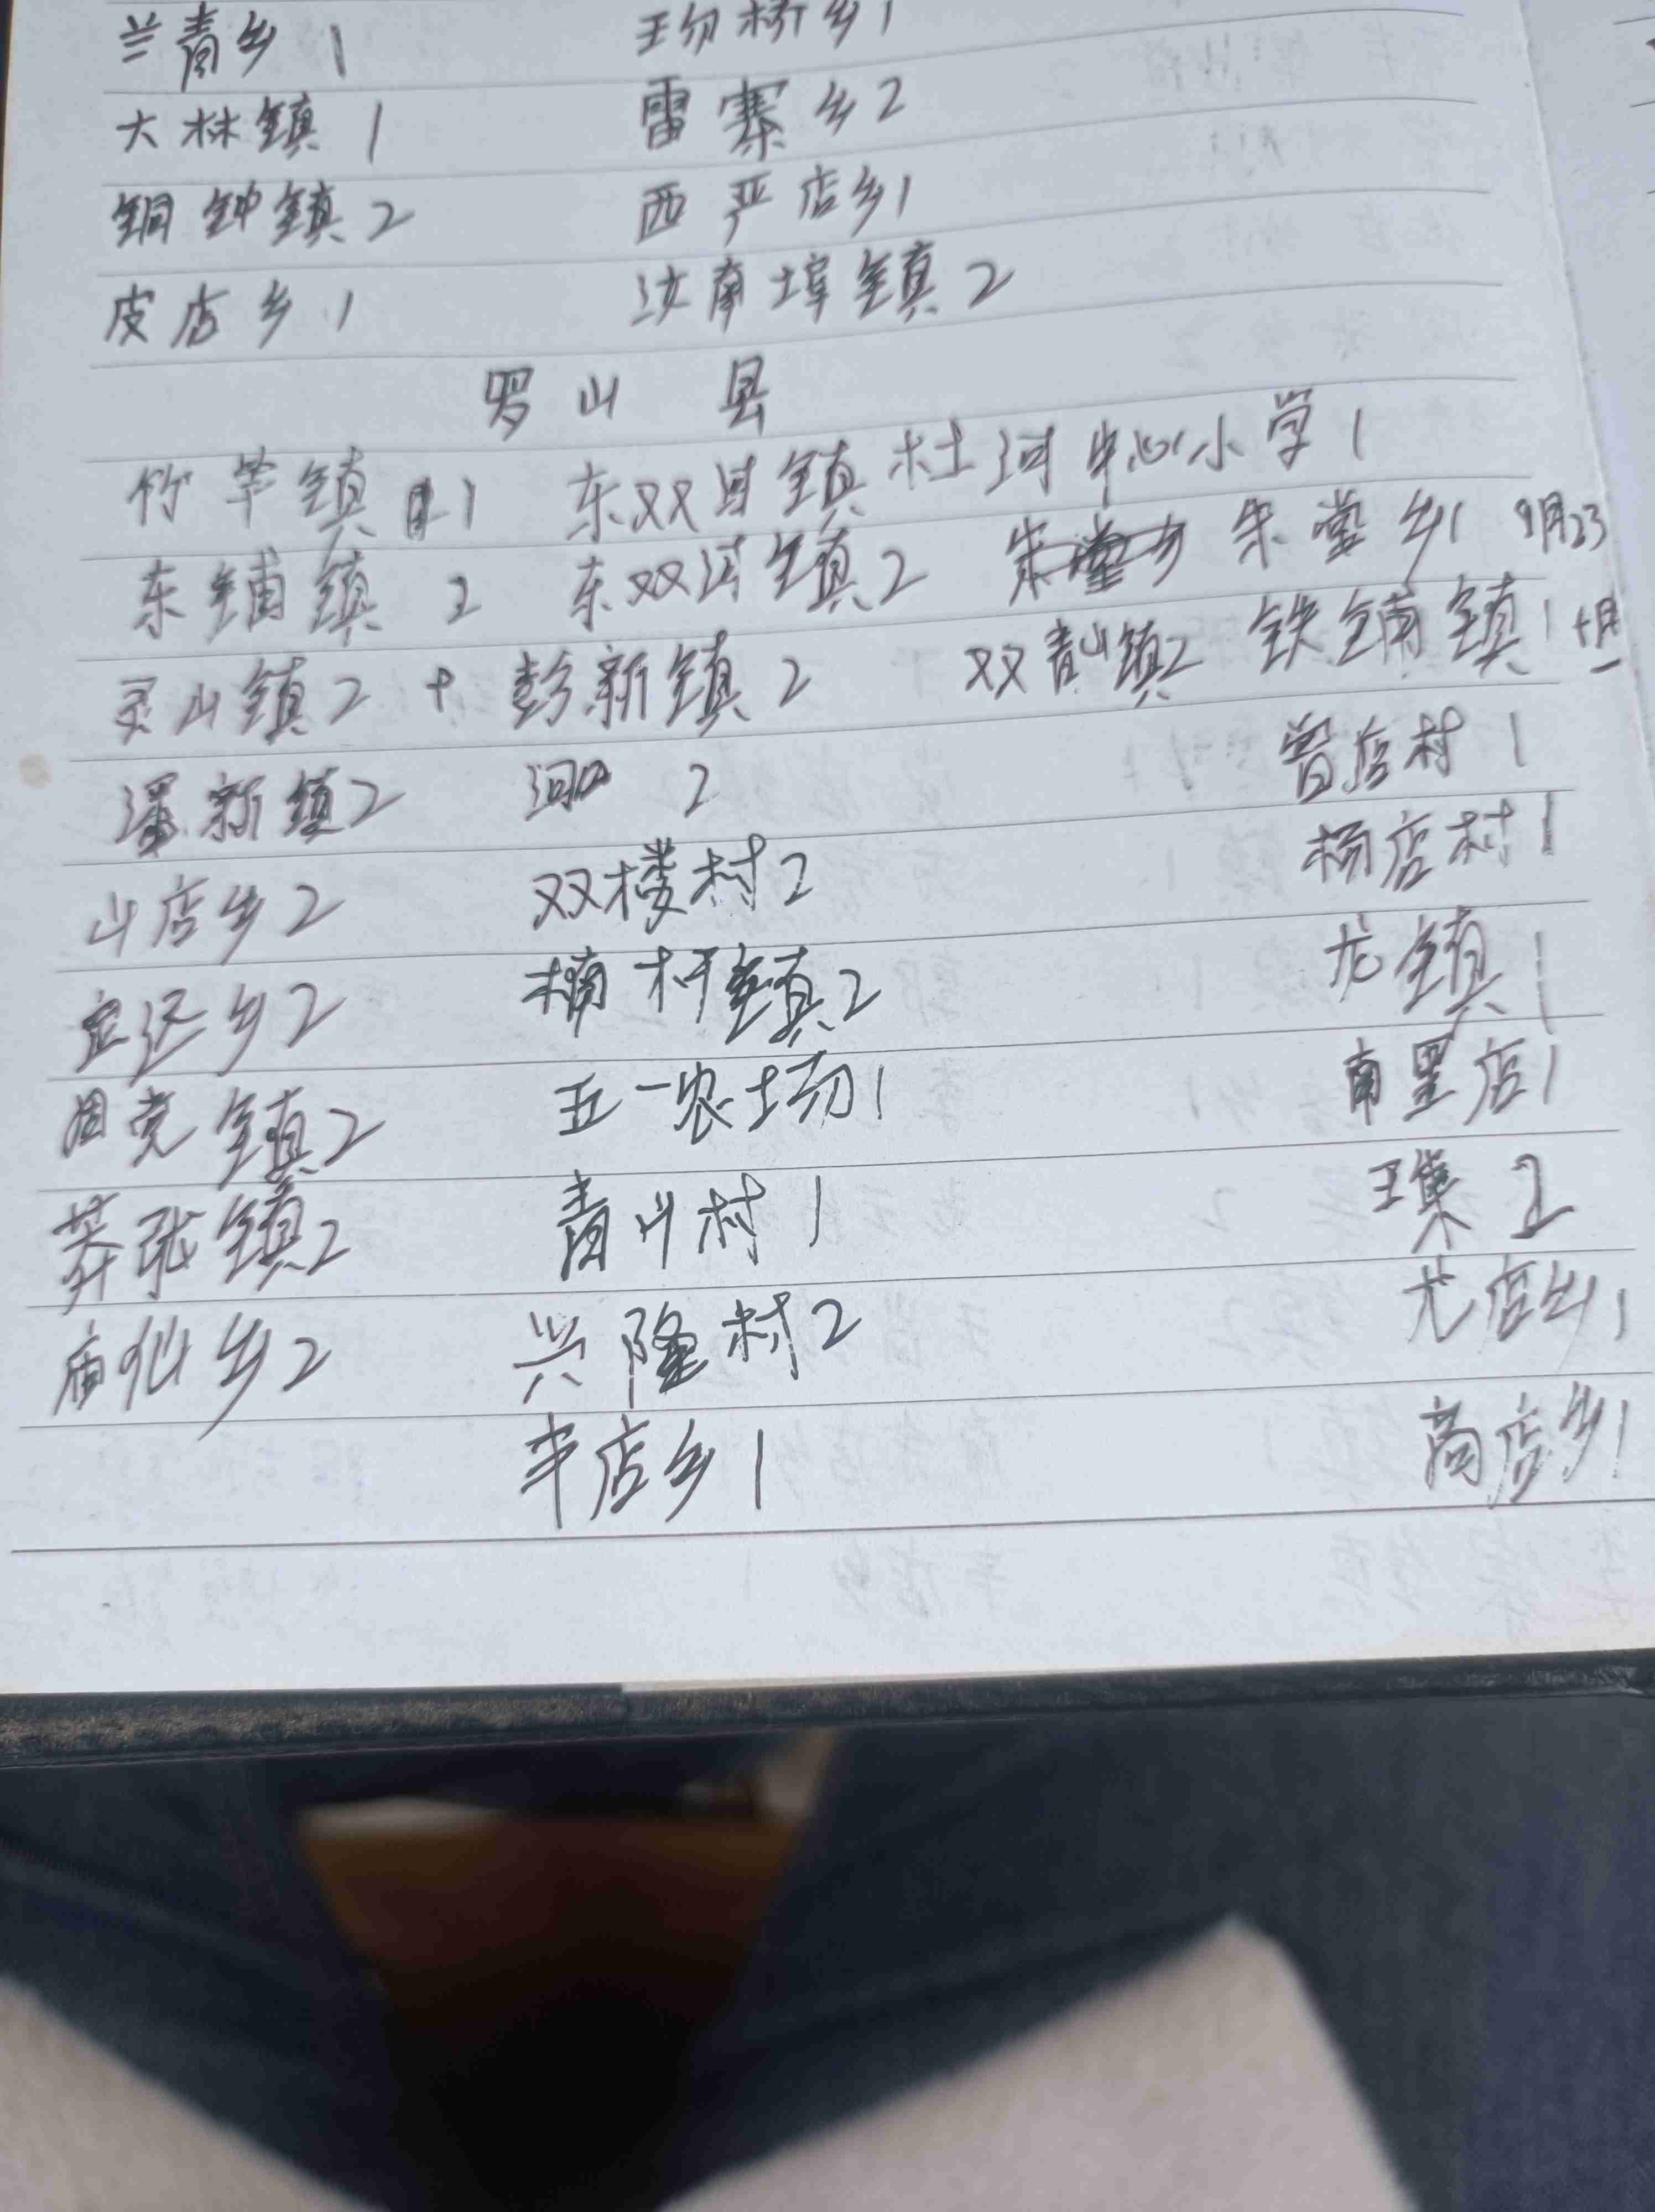 兰青乡 1 玢桥乡 1
大林镇 1 雷寨乡2
铜钟镇2 西严店乡1
皮店乡 1 汝南埠镇2
罗山 县
竹竿镇 1 东双河镇杜河中心小学1
东铺镇 2 东双河镇2 朱堂乡1 9月23
灵山镇2 + 彭新镇2 双青山镇2 铁铺镇1 十月一
潘新镇2 河口 2 曾店村 1
山店乡2 双楼村2 杨店村1
定远乡2 楠杆镇2 龙镇1
周党镇2 五一农场1 南星店1
莽张镇2 青山村1 王集2
庙仙乡2 兴隆村2 尤店乡1
丰店乡1 高店乡1